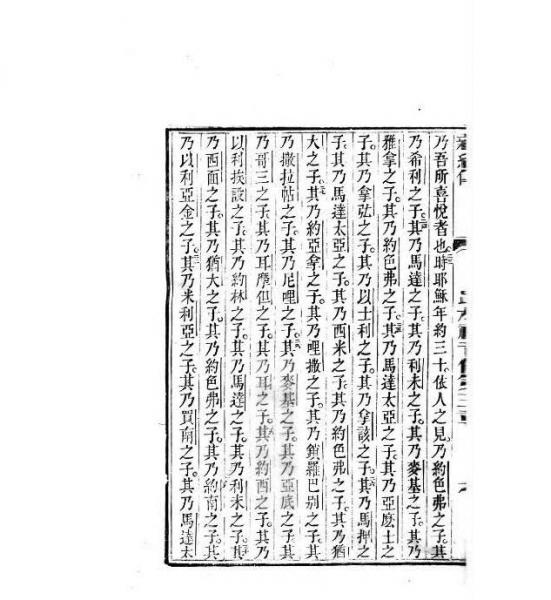 乃吾所喜悅者也時耶穌年約三十依人之見乃約色弗之子其
乃希利之子其乃馬達之子其乃利未之子其乃麥基之子其乃
雅拿之子其乃約色弗之子其乃馬達太亞之子其乃亞麼士之
子其乃拿訖之子其乃以士利之子其乃拿該之子其乃馬押之
子其乃馬達太亞之子其乃西米之子其乃約色弗之子其乃猶
大之子其乃約亞拿之子其乃哩撒之子其乃鎖羅巴別之子其
乃撒拉帖之子其乃尼哩之子其乃麥基之子其乃亞底之子其
乃哥三之子其乃耳摩但之子其乃耳之子其乃約西之子其乃
以利挨設之子其乃約林之子其乃馬達之子其乃利未之子其
乃西面之子其乃猶大之子其乃約色弗之子其乃約南之子其
乃以利亞金之子其乃米利亞之子其乃買南之子其乃馬達太